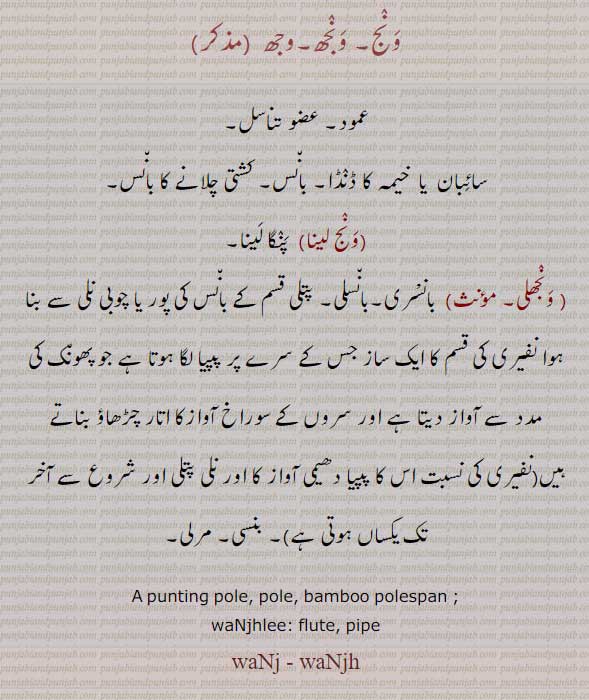 وَنْج۔ وَنْجھ۔ وجھ (مذکر)
عمود۔ عضو تناسل۔
سائبان یا خیمہ کا ڈنڈا۔ بانْس۔ کشتی چلانے کا بانْس۔
(وَنْج لینا) پَنْگا لَینا۔
( وَنْجھلی۔ مؤنث) بانسْری۔ بانْسلی۔ پتلی قسم کے بانْس کی پور یا چوبی نلی سے بنا
ہوا نفیری کی قسم کا ایک ساز جس کے سرے پر پیپیا لگا ہوتا ہے جو پھونْک کی
مدد سے آواز دیتا ہے اور سروں کے سوراخ آواز کا اتار چڑھاؤ بناتے
ہیں(نفیری کی نسبت اس کا پیپیا دھیمی آواز کا اور نلی پتلی اور شروع سے آخر
تک یکساں ہوتی ہے)۔ بنسی۔ مرلی۔
A punting pole, pole, bamboo polespan ;
waNjhlee: flute, pipe
waNj - waNjh